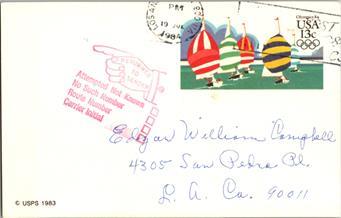 LOS AN
PM
19 JUL
1984
Olympics 84
USA
13c
RETURNED
TO
SENDER
Attempted Not Known
No Such Number
Route Number
Carrier Initial
Edgar William Campbell
4305 San Pedro Pl.
L. A. Ca. 90011
© USPS 1983